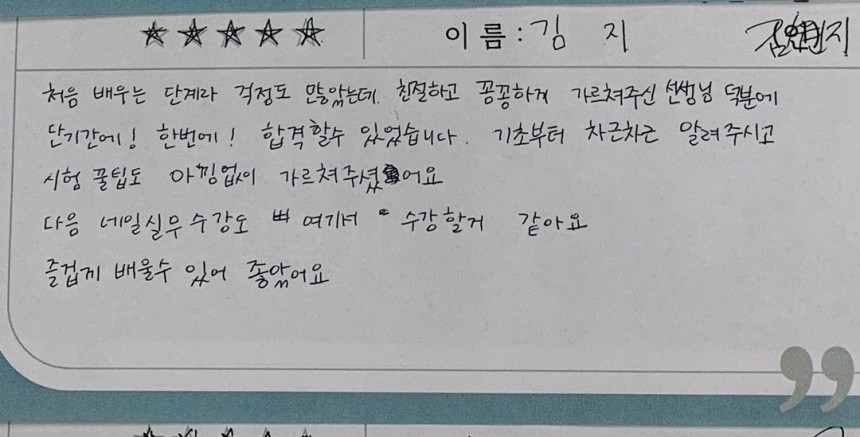 ★★★★★ 이름 : 김 지
처음 배우는 단계라 걱정도 많았는데. 친절하고 꼼꼼하게 가르쳐주신 선생님 덕분에
단기간에! 한번에! 합격할수 있었습니다. 기초부터 차근차근 알려주시고
시험 꿀팁도 아낌없이 가르쳐주셨어요
다음 네일실무수강도 여기서 수강할거 같아요
즐겁게 배울수 있어 좋았어요
”